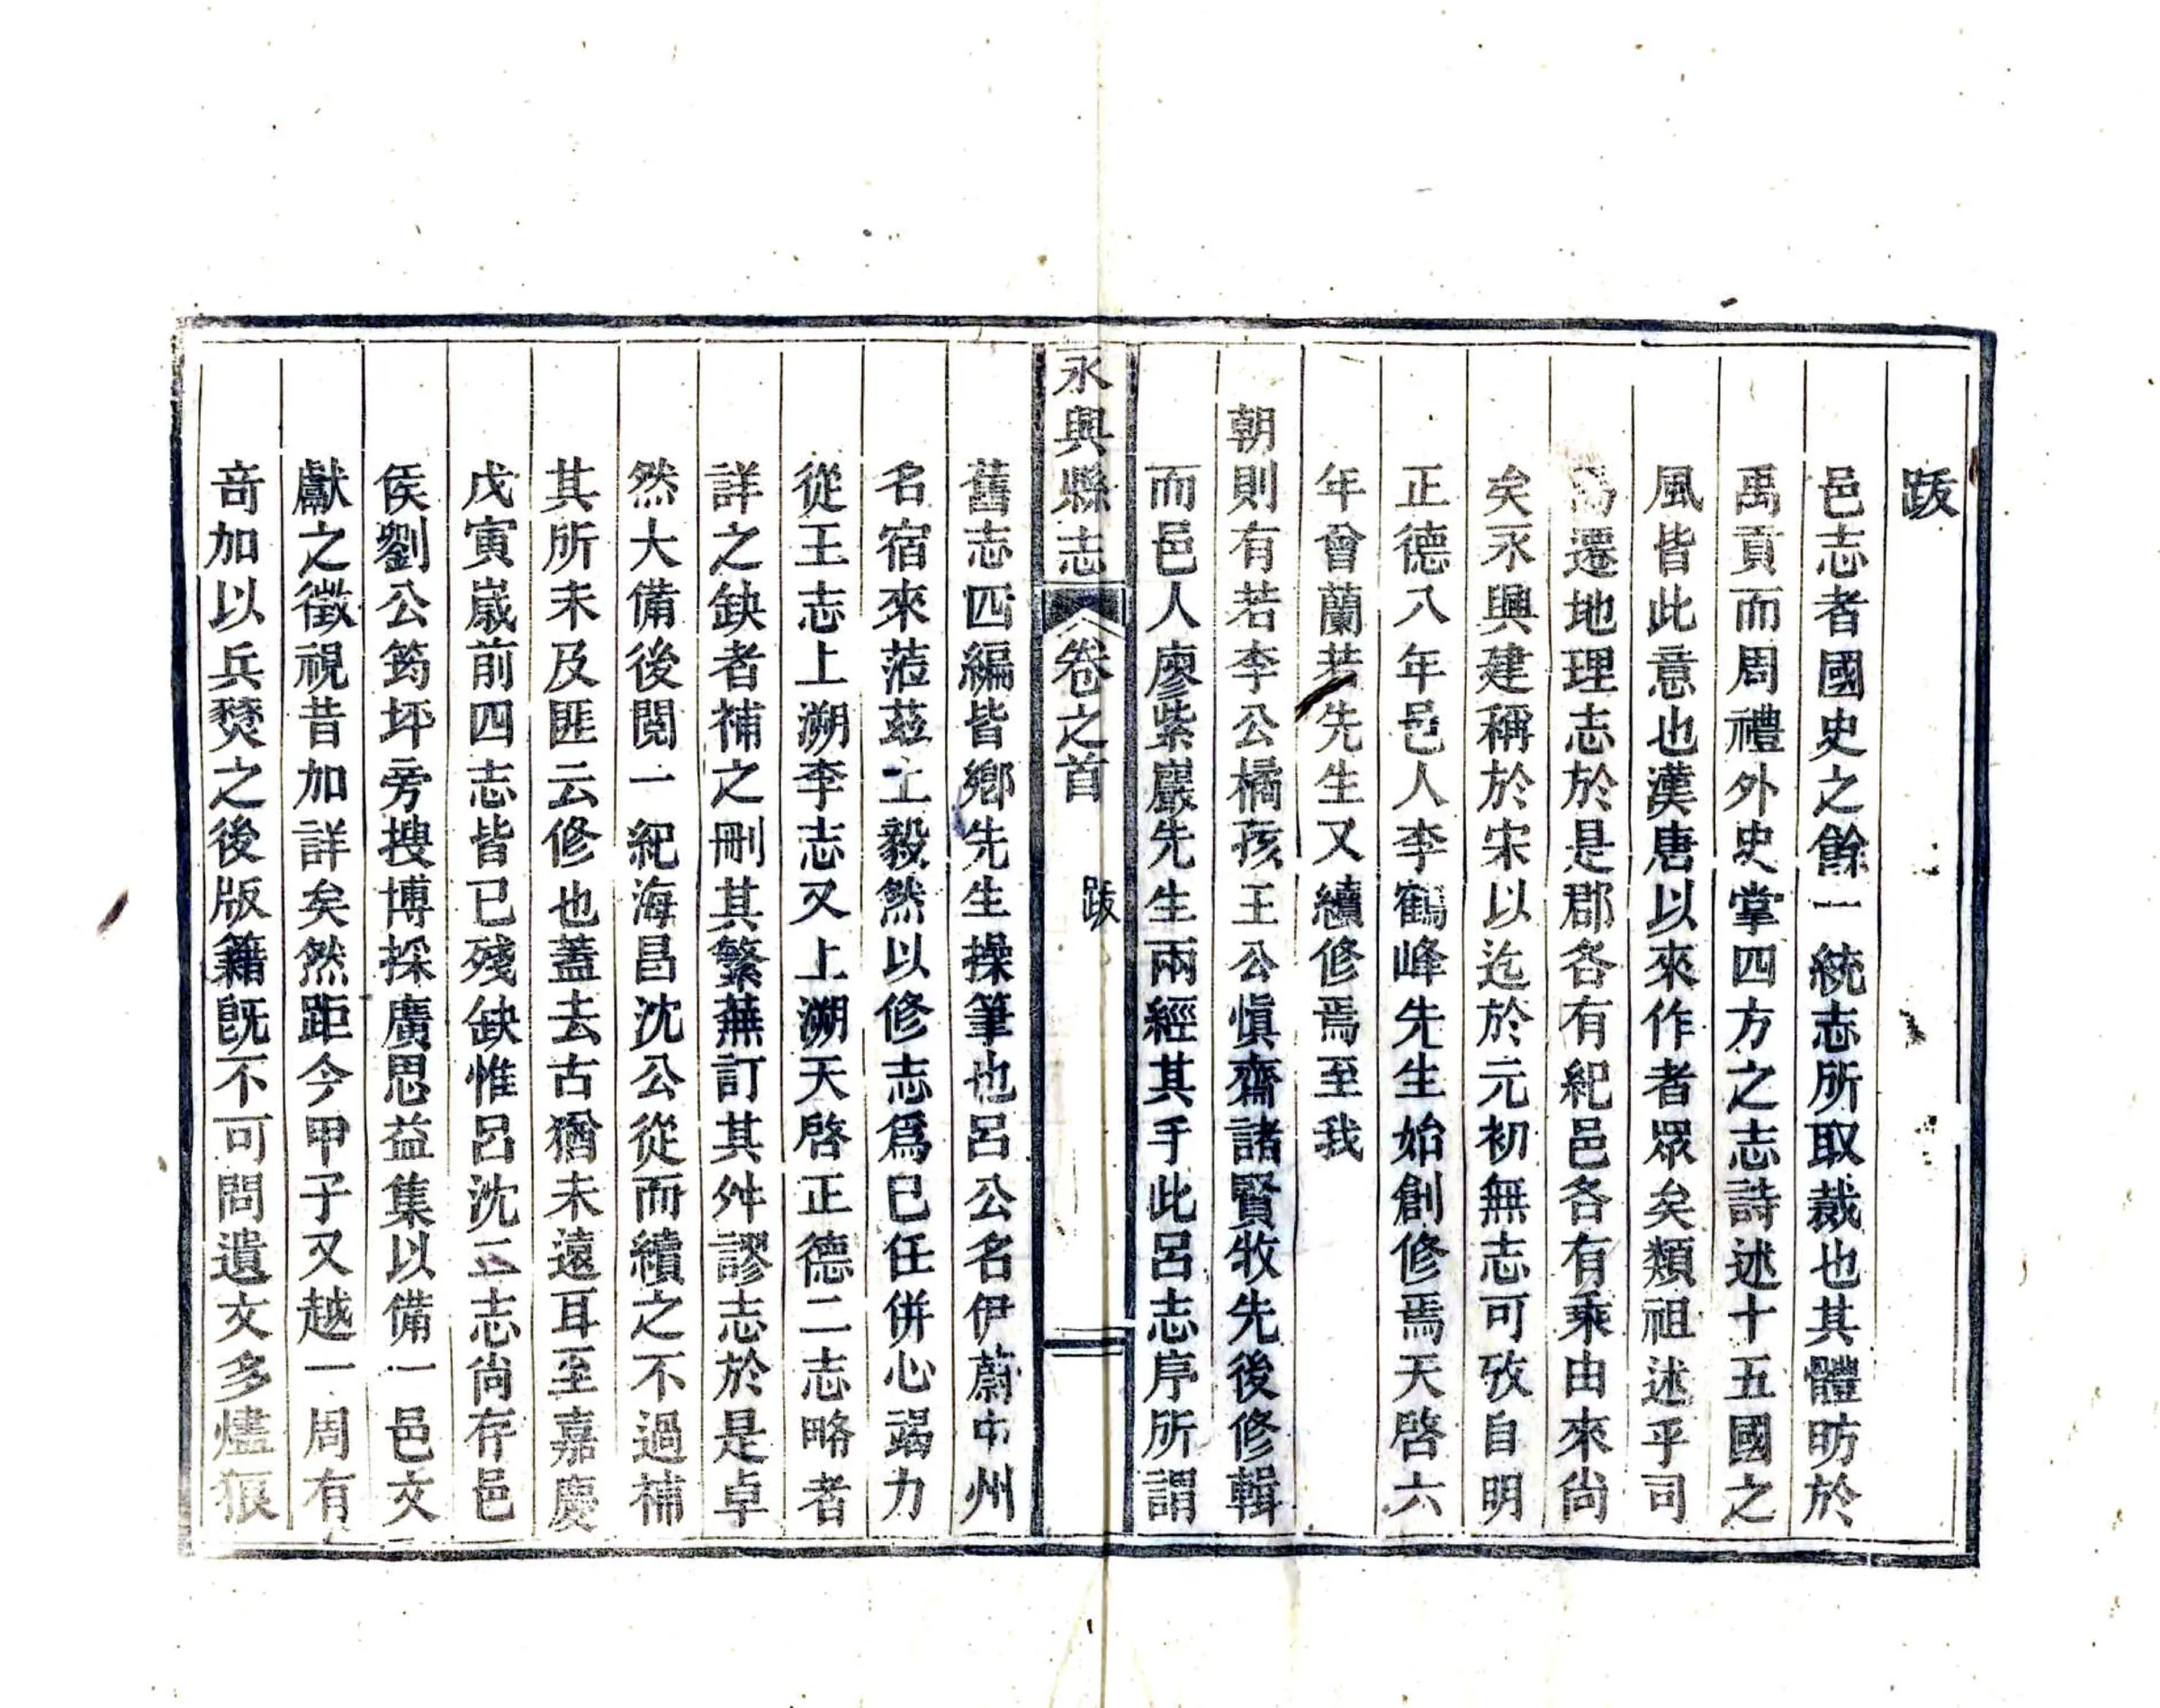 跋
邑志者國史之餘一統志所取裁也其體昉於
禹貢而周禮外史掌四方之志詩述十五國之
風皆此意也漢唐以來作者眾矣類祖述乎司
馬遷地理志於是郡各有紀邑各有乘由來尚
矣永興建稱於宋以迄於元初無志可攷自明
正德八年邑人李鶴峰先生始創修焉天啓六
年曾蘭若先生又續修焉至我
朝則有若李公橘孩王公慎齋諸賢牧先後修輯
而邑人廖紫巖先生兩經其手此呂志序所謂
永興縣志 卷之首 跋 一
舊志四編皆鄉先生操筆也呂公名伊蔚中州
名宿來蒞茲土毅然以修志爲已任併心竭力
從王志上溯李志又上溯天啓正德二志略者
詳之缺者補之刪其繁蕪訂其舛謬志於是卓
然大備後閱一紀海昌沈公從而續之不過補
其所未及匪云修也蓋去古猶未遠耳至嘉慶
戊寅嵗前四志皆已殘缺惟呂沈二志尚存邑
矦劉公筠坪旁搜博採廣思益集以備一邑文
獻之徵視昔加詳矣然距今甲子又越一周有
竒加以兵燹之後版籍旣不可問遺文多燼痕